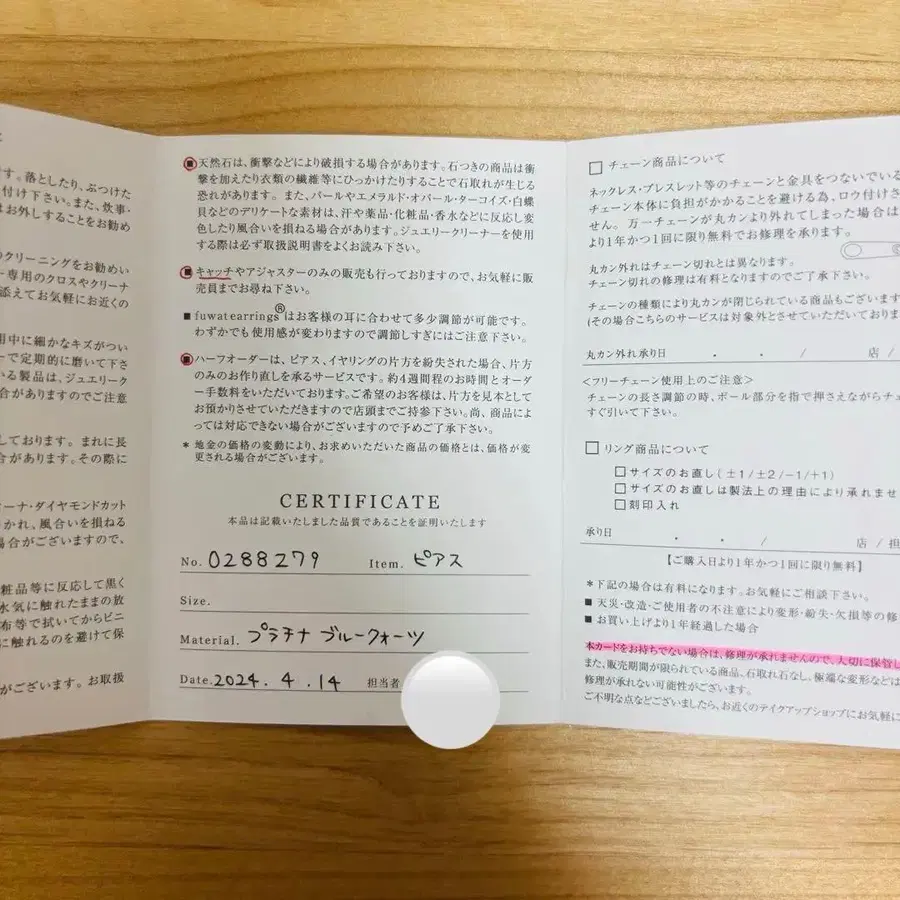 す。落としたり、ぶつけた
付け下さい。また、炊事・
はお外しすることをお勧め
のクリーニングをお勧めい
ー専用のクロスやクリーナ
添えてお気軽にお近くの
用中に細かなキズがつい
ーで定期的に磨いて下さ
いる製品は、ジュエリーク
合がありますのでご注意
しております。まれに長
合があります。その際に
オーナ・ダイヤモンドカット
かれ、風合いを損ねる
場合がございますので、
粧品等に反応して黒く
水気に触れたままの放
布等で拭いてからビニ
に触れるのを避けて保
がございます。お取扱
■天然石は、衝撃などにより破損する場合があります。石つきの商品は衝
撃を加えたり衣類の繊維等にひっかけたりすることで石取れが生じる
恐れがあります。また、パールやエメラルド・オパール・ターコイズ・白蝶
貝などのデリケートな素材は、汗や薬品・化粧品・香水などに反応し変
色したり風合いを損ねる場合があります。ジュエリークリーナーを使用
する際は必ず取扱説明書をよくお読み下さい。
■キャッチやアジャスターのみの販売も行っておりますので、お気軽に販
売員までお尋ね下さい。
■fuwatearrings®はお客様の耳に合わせて多少調節が可能です。
わずかでも使用感が変わりますので調節しすぎにはご注意下さい。
■ハーフオーダーは、ピアス、イヤリングの片方を紛失された場合、片方
のみのお作り直しを承るサービスです。約4週間程のお時間とオーダ
ー手数料をいただいております。ご希望のお客様は、片方を見本として
お預かりさせていただきますので店頭までご持参下さい。尚、商品によ
っては対応できない場合がございますので予めご了承下さい。
* 地金の価格の変動により、お求めいただいた商品の価格とは、価格が変
更される場合がございます。
CERTIFICATE
本品は記載いたしました品質であることを証明いたします
No. 0288279 Item. ピアス
Size.
Material. プラチナ ブルークォーツ
Date. 2024. 4. 14 担当者
□ チェーン商品について
ネックレス・ブレスレット等のチェーンと金具をつないでいる
チェーン本体に負担がかかることを避ける為、ロウ付けさ
せん。万一チェーンが丸カンより外れてしまった場合は
より1年かつ1回に限り無料でお修理を承ります。
丸カン外れはチェーン切れとは異なります。
チェーン切れの修理は有料となりますのでご了承下さい。
チェーンの種類により丸カンが閉じられている商品もございます
(その場合こちらのサービスは対象外とさせていただいております
丸カン外れ承り日 ・ ・ / 店 /
<フリーチェーン使用上のご注意>
チェーンの長さ調節の時、ボール部分を指で押さえながらチェ
すぐ引いて下さい。
□ リング商品について
□サイズのお直し(±1/±2/−1/+1)
□サイズのお直しは製法上の理由により承れませ
□刻印入れ
承り日 ・ ・ / 店 / 担
【ご購入日より1年かつ1回に限り無料】
*下記の場合は有料になります。お気軽にご相談下さい。
■ 天災・改造・ご使用者の不注意により変形・紛失・欠損等の修
■ お買い上げより1年経過した場合
本カードをお持ちでない場合は、修理が承れませんので、大切に保管し
また、販売期間が限られている商品、石取れ石なし、極端な変形などは
修理が承れない可能性がございます。
ご不明な点などございましたら、お近くのテイクアップショップにお気軽に